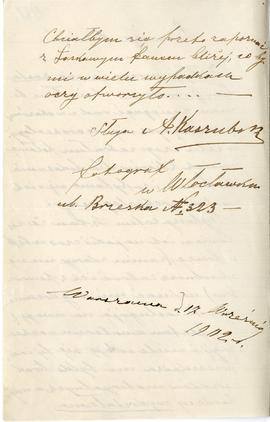 Chciałbym się przeto zapoznać
z Łaskawym Panem bliżej, co by
mi w wielu wypadkach
oczy otworzyło. . . —
Sługa A. Kaszubski
fotograf
w Włocławku
ul. Brzeska № 323 —
Warszawa d. 17 Września
1902 r.